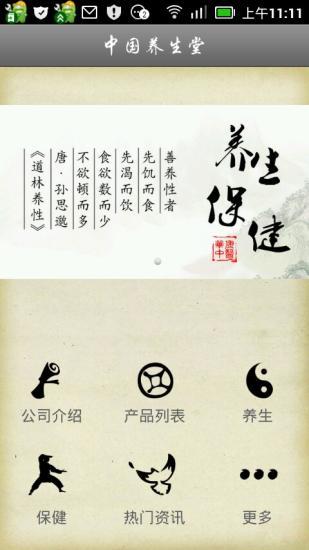 上午11:11
中国养生堂
善养性者
先饥而食
先渴而饮
食欲数而少
不欲顿而多
唐·孙思邈
《道林养性》
养生
保健
公司介绍
产品列表
养生
保健
热门资讯
更多